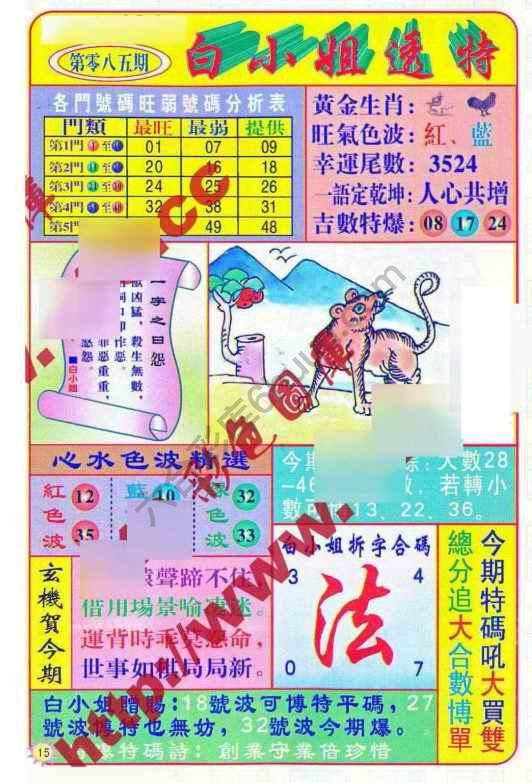 第零八五期
白小姐透特
各門號碼旺弱號碼分析表
門類 最旺 最弱 提供
第1門 至 01 07 09
第2門 至 20 16 18
第3門 至 24 25 26
第4門 至 32 38 31
第5門 49 48
黃金生肖:
旺氣色波: 紅、藍
幸運尾數: 3524
一語定乾坤: 人心共增
吉數特爆: 08 17 24
一字之曰怨
獸凶猛,殺生無數,
作惡。
罪惡重重,
怨。
■白小姐
心水色波精選
紅色波 12 35
藍 10
綠色波 32 33
今期 :大數28
-46 數,若轉小
數可 13、22、36。
玄機賀今期
猿聲蹄不住
借用場景喻淒迷。
運背時乖莫怨命,
世事如棋局局新。
白小姐拆字合碼
3 4
法
0 7
今期特碼吼大買雙
總分追大合數博單
白小姐贈賜:18號波可博特平碼,27
號波博特也無妨,32號波今期爆。
特碼詩: 創業守業倍珍惜
15
http://www.
.cc
彩色@庫
六合彩库